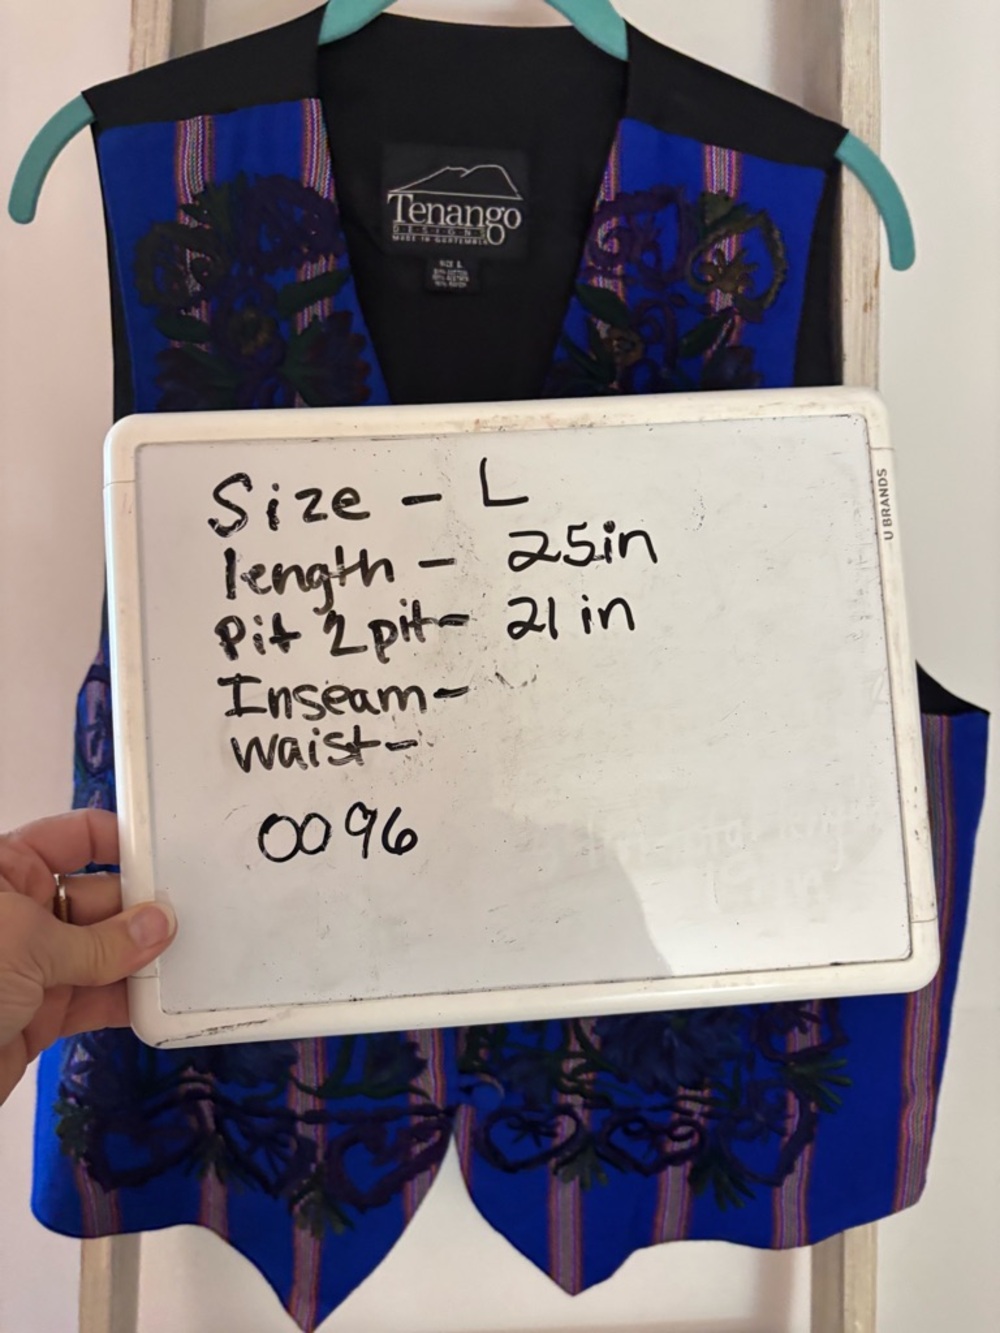 Tenango
DESIGNS
MADE IN GUATEMALA
SIZE L
Size - L
length - 25in
Pit 2pit- 21 in
Inseam-
waist-
0096
U BRANDS